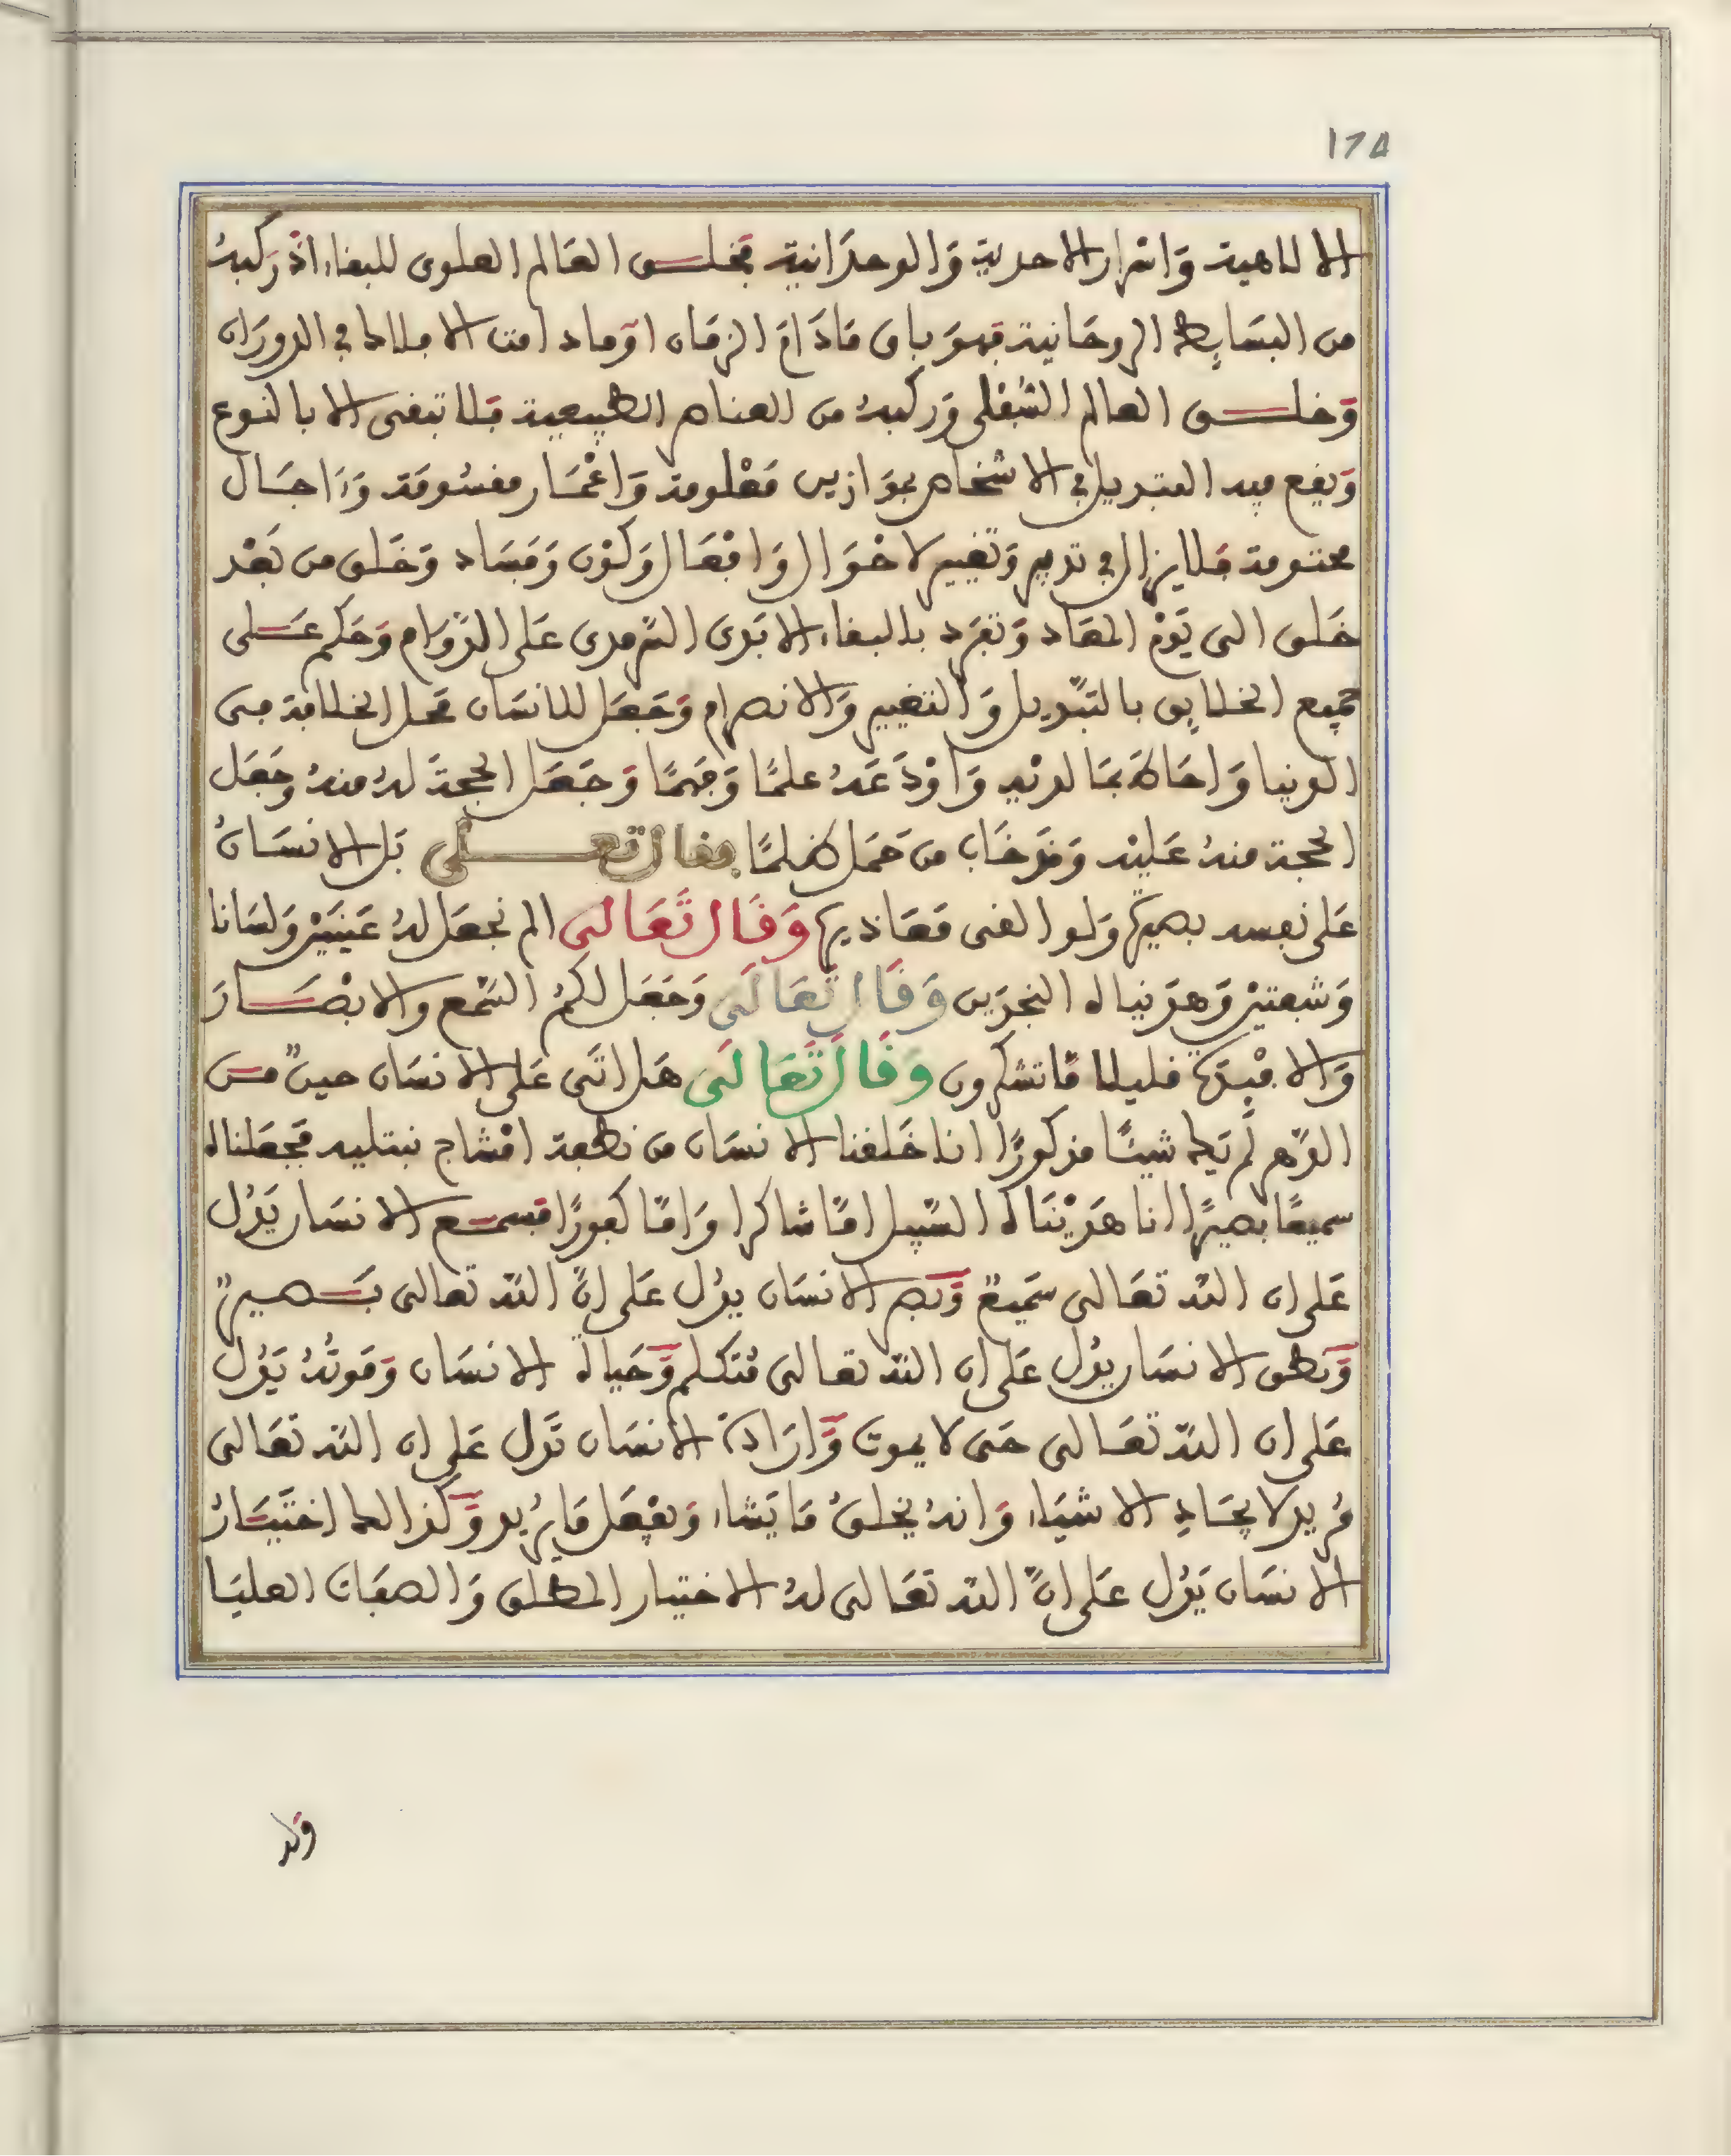 178
الالاهية وَاسْرار الاحدية وَالوحدَانية فخلق العَالم العلوى للبقاء اذْ رَكبهُ
من البسَايِط الروحَانية فهوَ باق مَادَامَ الزمَان اوْ مادامت الافلاك في الدورَان
وَخلق العالم السُّفْلى وَركبهُ من العناصر الطبيعية فلا تبقى الا بالنوع
وَيقع فيه التبديل في الاشخاص بموَازين مَعْلومة وَاعْمَار مقسُومَة وَءَاجَال
محتومة فلا يزال في تدبير وَتغيير لاحْوَال وَافْعَال وَكوْن وَفسَاد وَخَلق من بَعْد
خَلق الى يَوْم المعَاد وَتفرد بالبقاء الابَدى السَّرمدى عَلى الدَّوَام وَحَكم عَلى
جميع الخلايق بالتبْديل وَالتغيير وَالانصرام وَجَعَل للانسَان محل الخلافة فى
الدنيا وَاحَاطهُ بمَا لديْه وَاوْدَعَهُ علمًا وَفهمًا وَجَعَل الحجةَ لهُ منهُ وَجعَل
الحجة منهُ عَليْه وَقد خَاب من حَمَل ظلمًا فقال تعلى بَل الانسَانُ
عَلى نفسه بصيرَة وَلو القى مَعَاذيره وَقَالَ تَعَالى الم نجعَل لهُ عَيْنَيْن وَلسَانا
وَشفتيْن وَهدَيناه النجدَين وَقَالَ تَعَالَى وَجَعَل لكمُ السّمْع والابْصَارَ
وَالافْئدَة قليلا مَّا تشكرون وَقَالَ تَعَالَى هَل اتَى عَلى الانسَان حينٌ من
الدّهر لَمْ يَك شيئًا مذكورًا انا خَلقنا الانسَان من نطفة امْشاج نبتليه فجَعَلناه
سميعًا بصيرًا انا هَدَيْنَاه السّبيل امّا شاكرا وَامّا كفورًا فسمع الانسَان يَدُل
عَلى ان الله تعَالى سَميعٌ وَّبَصر الانسَان يدُل عَلى انَّ الله تعالى بَصيرٌ
وَّنطق الانسَان يدُل عَلى ان الله تعالى مُتكلم وَّحَياة الانسَان وَمَوتُهُ يَدُل
عَلى ان الله تعَالى حَى لا يموت وَّارَادَة الانسَان تَدل عَلى ان الله تعَالى
مُريد لايجَادِ الاشيَاء وَانهُ يخلقُ مَا يَشاء وَيفْعَل مَا يُريد وَّكذالك اختيَارُ
الانسَان يَدُل عَلى انّ الله تعَالى لهُ الاختيار المطلق وَالصفَات العليَا
وله